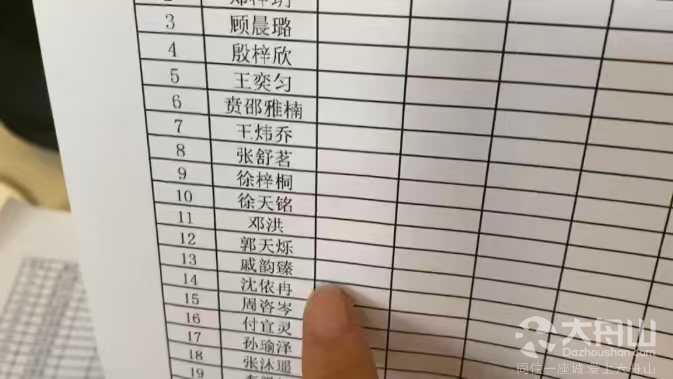 3 顾晨璐
4 殷梓欣
5 王奕匀
6 贲邵雅楠
7 王炜乔
8 张舒茗
9 徐梓桐
10 徐天铭
11 邓洪
12 郭天烁
13 戚韵臻
14 沈依冉
15 周咨岑
16 付宜灵
17 孙瑜泽
18 张沐遥
19
大舟山
Dazhoushan.com
同住一座城,爱上大舟山